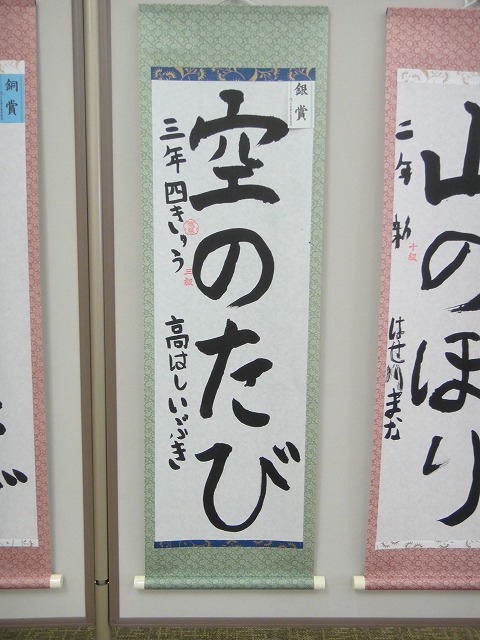 山のほり
二年
十級
銀賞
空のたび
三年 四きゅう
三級
高はしいぶき
銅賞